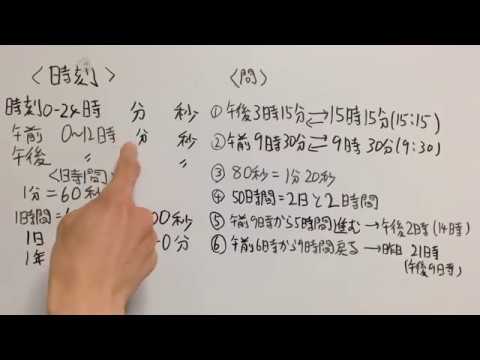 〈時刻〉
時刻0-24時 分 秒
午前 0~12時 分 秒
午後 〃 〃
〈時間〉
1分=60秒
1時間= 00秒
1日 0分
1年
〈問〉
①午後3時15分⇄15時15分(15:15)
②午前9時30分⇄9時30分(9:30)
③80秒=1分20秒
④50時間=2日と2時間
⑤午前9時から5時間進む→午後2時(14時)
⑥午前6時から9時間戻る→昨日 21時
(午後9時)